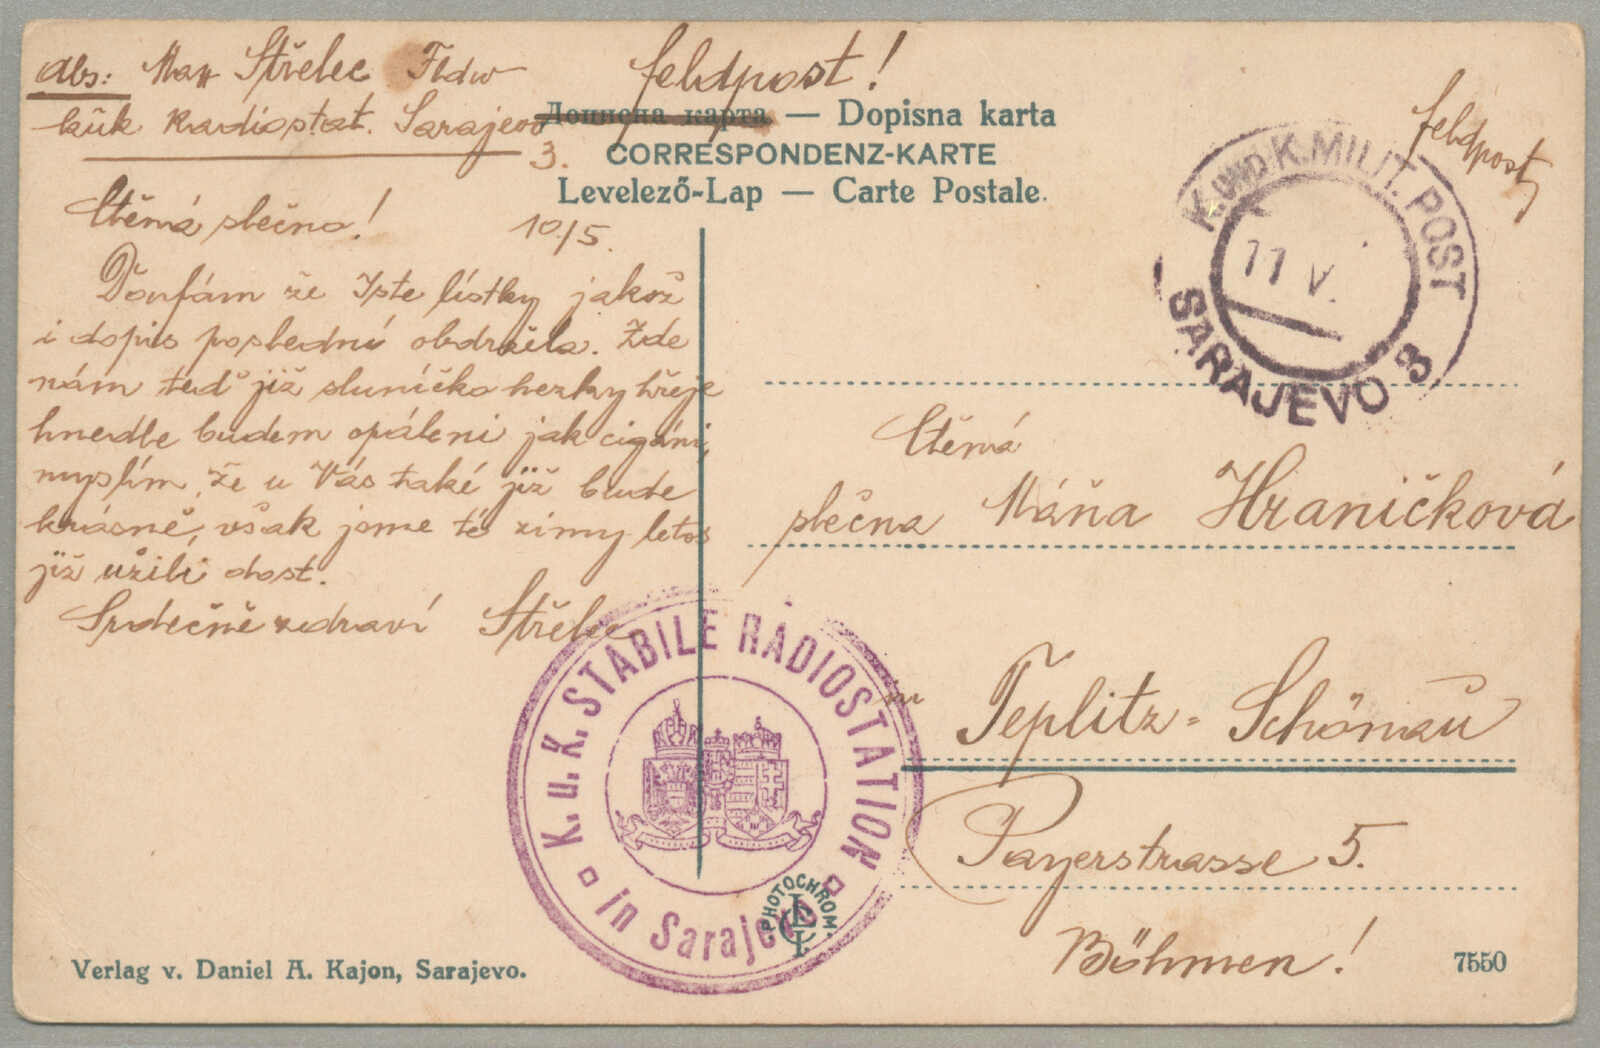 abs: Max Střelec Fldw
kuk Radiostat. Sarajevo
3.
feldpost!
feldpost
Дописна карта — Dopisna karta
CORRESPONDENZ-KARTE
Levelező-Lap — Carte Postale.
K. UND K. MILIT. POST
11 V.
SARAJEVO 3
Ctěná slečno! 10/5.
Doufám že Jste lístky jakož
i dopis poslední obdržela. Zde
nám teď již sluníčko hezky hřeje
hnedle budem opáleni jak cigáni,
myslím, že u Vás také již bude
krásně, však jsme té zimy letos
již užili dost.
Srdečně zdraví Střelec
Ctěná
slečna Máňa Hraničková
in Teplitz-Schönau
Payerstrasse 5.
Böhmen!
K. u. K. STABILE RADIOSTATION
in Sarajevo
PHOTOCHROM.
Verlag v. Daniel A. Kajon, Sarajevo.
7550